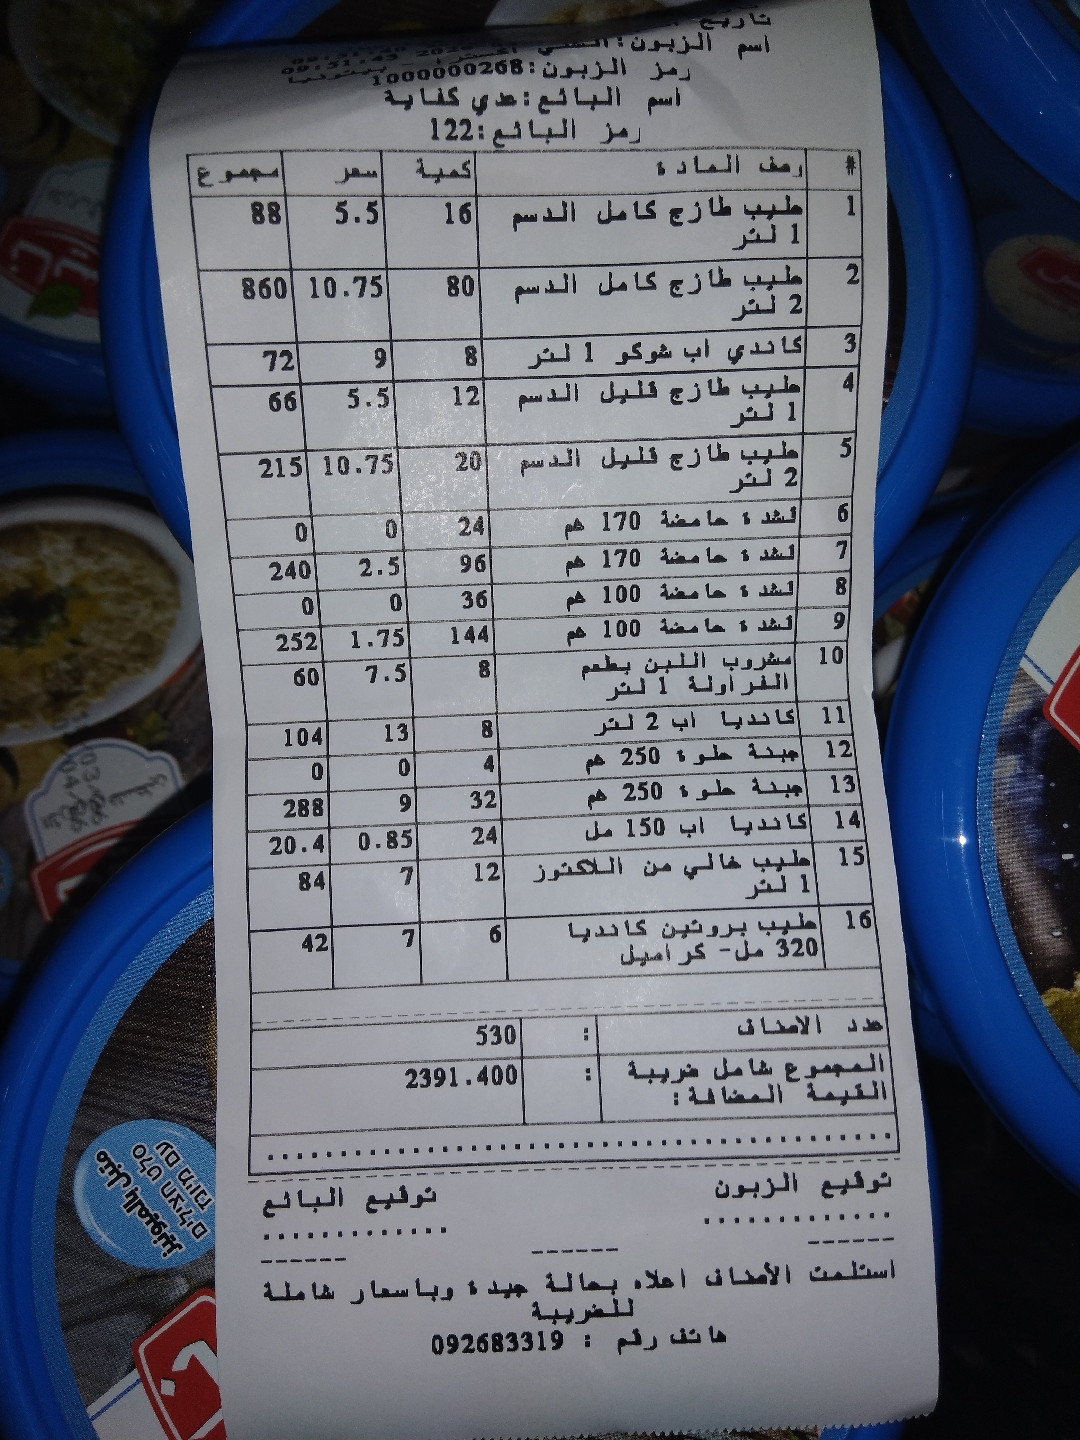 تاريخ
اسم الزبون:
09:51:45 2026
رمز الزبون:1000000268
اسم البائع:عدي كفاية
رمز البائع:122
# وصف المادة كمية سعر مجموع
1 حليب طازج كامل الدسم 16 5.5 88
1 لتر
2 حليب طازج كامل الدسم 80 10.75 860
2 لتر
3 كاندي اب شوكو 1 لتر 8 9 72
4 حليب طازج قليل الدسم 12 5.5 66
1 لتر
5 حليب طازج قليل الدسم 20 10.75 215
2 لتر
6 قشدة حامضة 170 غم 24 0 0
7 قشدة حامضة 170 غم 96 2.5 240
8 قشدة حامضة 100 غم 36 0 0
9 قشدة حامضة 100 غم 144 1.75 252
10 مشروب اللبن بطعم 8 7.5 60
الفراولة 1 لتر
11 كانديا اب 2 لتر 8 13 104
12 جبنة حلوة 250 غم 4 0 0
13 جبنة حلوة 250 غم 32 9 288
14 كانديا اب 150 مل 24 0.85 20.4
15 حليب خالي من اللاكتوز 12 7 84
1 لتر
16 حليب بروتين كانديا 6 7 42
320 مل- كراميل
عدد الأصناف : 530
المجموع شامل ضريبة : 2391.400
القيمة المضافة:
توقيع الزبون توقيع البائع
استلمت الأصناف اعلاه بحالة جيدة وبأسعار شاملة
للضريبة
هاتف رقم : 092683319
متبل بالميونيز
סלט חצילים
עם מיונז